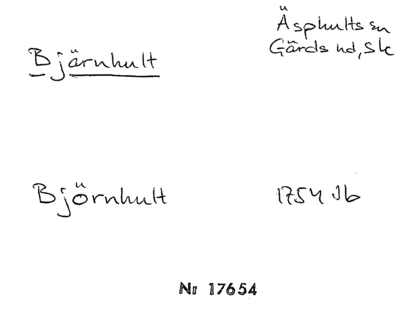 Äsphults sn
Bjärnhult Gärds hd, Sk
Björnhult 1754 Jb
Nr 17654